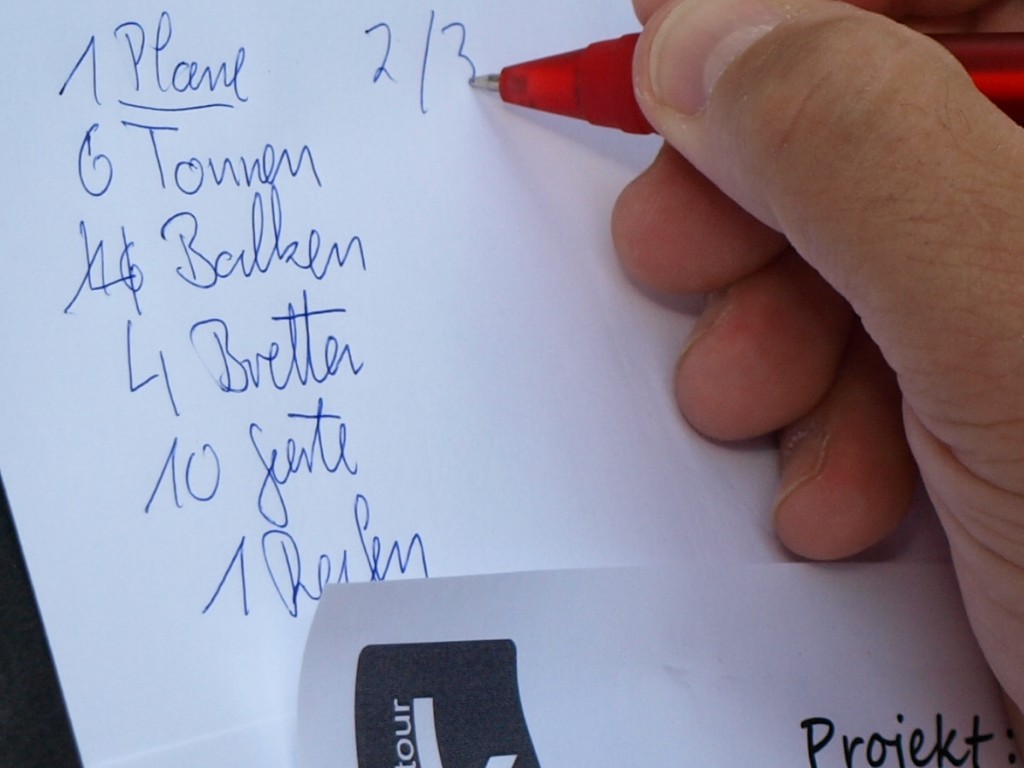 1 Plane 2/3
6 Tonnen
16 Balken
4 Bretter
10 Gurte
1 Reifen
tour
Projekt: